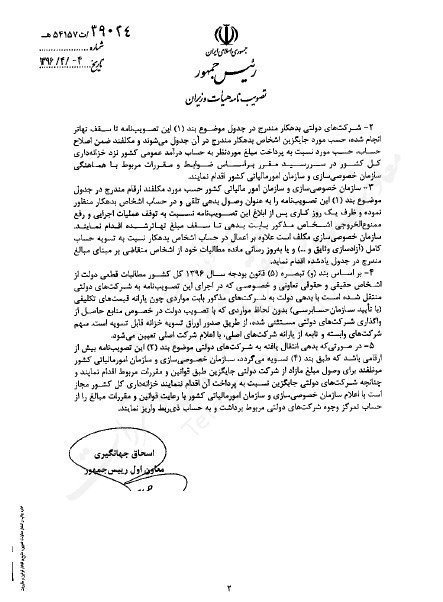 ۳۹۰۲۴/ت۵۴۱۵۷هـ
شماره
۱۳۹۶/۴/۰۴
تاریخ
جمهوری اسلامی ایران
رئیس جمهور
تصویب نامه هیأت وزیران
۲- شرکت‌های دولتی بدهکار مندرج در جدول موضوع بند (۱) این تصویب‌نامه تا سقف تهاتر
انجام شده، حسب مورد جایگزین اشخاص بدهکار مندرج در آن جدول می‌شوند و مکلفند ضمن اصلاح
حساب، حسب مورد نسبت به پرداخت مبلغ موردنظر به حساب درآمد عمومی کشور نزد خزانه‌داری
کل کشور در سررسید مقرر براساس ضوابط و مقررات مربوط با هماهنگی
سازمان خصوصی‌سازی و سازمان امورمالیاتی کشور اقدام نمایند.
۳- سازمان خصوصی‌سازی و سازمان امور مالیاتی کشور حسب مورد مکلفند ارقام مندرج در جدول
موضوع بند (۱) این تصویب‌نامه را به عنوان وصول بدهی تلقی و در حساب اشخاص بدهکار منظور
نموده و ظرف یک روز کاری پس از ابلاغ این تصویب‌نامه نسبت به توقف عملیات اجرایی و رفع
ممنوع‌الخروجی اشخاص مذکور بابت بدهی تا سقف مبلغ تهاتر شده اقدام نمایند.
سازمان خصوصی‌سازی مکلف است علاوه بر اعمال در حساب اشخاص بدهکار نسبت به تسویه حساب
کامل (آزادسازی وثایق و ...) و یا به‌روز رسانی مانده مطالبات خود از اشخاص متقاضی بر مبنای مبالغ
مندرج در جدول یادشده اقدام نماید.
۴- بر اساس بند (و) تبصره (۵) قانون بودجه سال ۱۳۹۶ کل کشور مطالبات قطعی دولت از
اشخاص حقیقی و حقوقی تعاونی و خصوصی که در اجرای این تصویب‌نامه به شرکت‌های دولتی
منتقل شده است با بدهی دولت به شرکت‌های مذکور بابت مواردی چون یارانه قیمت‌های تکلیفی
(با تأیید سازمان حسابرسی) بدون لحاظ مواردی که با تصویب دولت در خصوص منابع حاصل از
واگذاری شرکت‌های دولتی مستثنی شده، از طریق صدور اوراق تسویه خزانه قابل تسویه است. سهم
شرکت‌های وابسته و تابعه از یارانه شرکت‌های اصلی، با اعلام شرکت اصلی تعیین می‌شود.
۵- در صورتی‌که بدهی انتقال یافته به شرکت‌های دولتی موضوع بند (۲) این تصویب‌نامه بیش از
ارقامی باشد که طبق بند (۴) تسویه می‌گردد، سازمان خصوصی‌سازی و سازمان امورمالیاتی کشور
موظفند برای وصول مبلغ مازاد از شرکت دولتی جایگزین طبق قوانین و مقررات مربوط اقدام نمایند و
چنانچه شرکت‌های دولتی جایگزین نسبت به پرداخت آن اقدام ننمایند خزانه‌داری کل کشور مجاز
است با اعلام سازمان خصوصی‌سازی و سازمان امورمالیاتی کشور با رعایت قوانین و مقررات مبالغ را از
حساب تمرکز وجوه شرکت‌های دولتی مربوط برداشت و به حساب ذی‌ربط واریز نمایند.
اسحاق جهانگیری
معاون اول رییس‌جمهور
۲